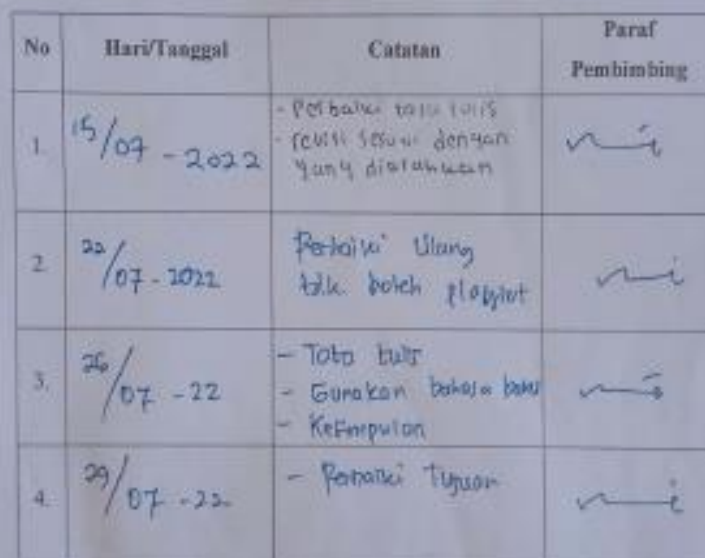 No Hari/Tanggal Catatan Paraf
Pembimbing
1. 15/07 - 2022 - Perbaiki tata tulis
- revisi sesuai dengan
yang diarahkan
2. 22/07 - 2022 Perbaiki Ulang
tdk boleh plagiat
3. 26/07 - 22 - Tata tulis
- Gunakan bahasa baku
- Kesimpulan
4. 29/07 - 22 - Perbaiki Tujuan